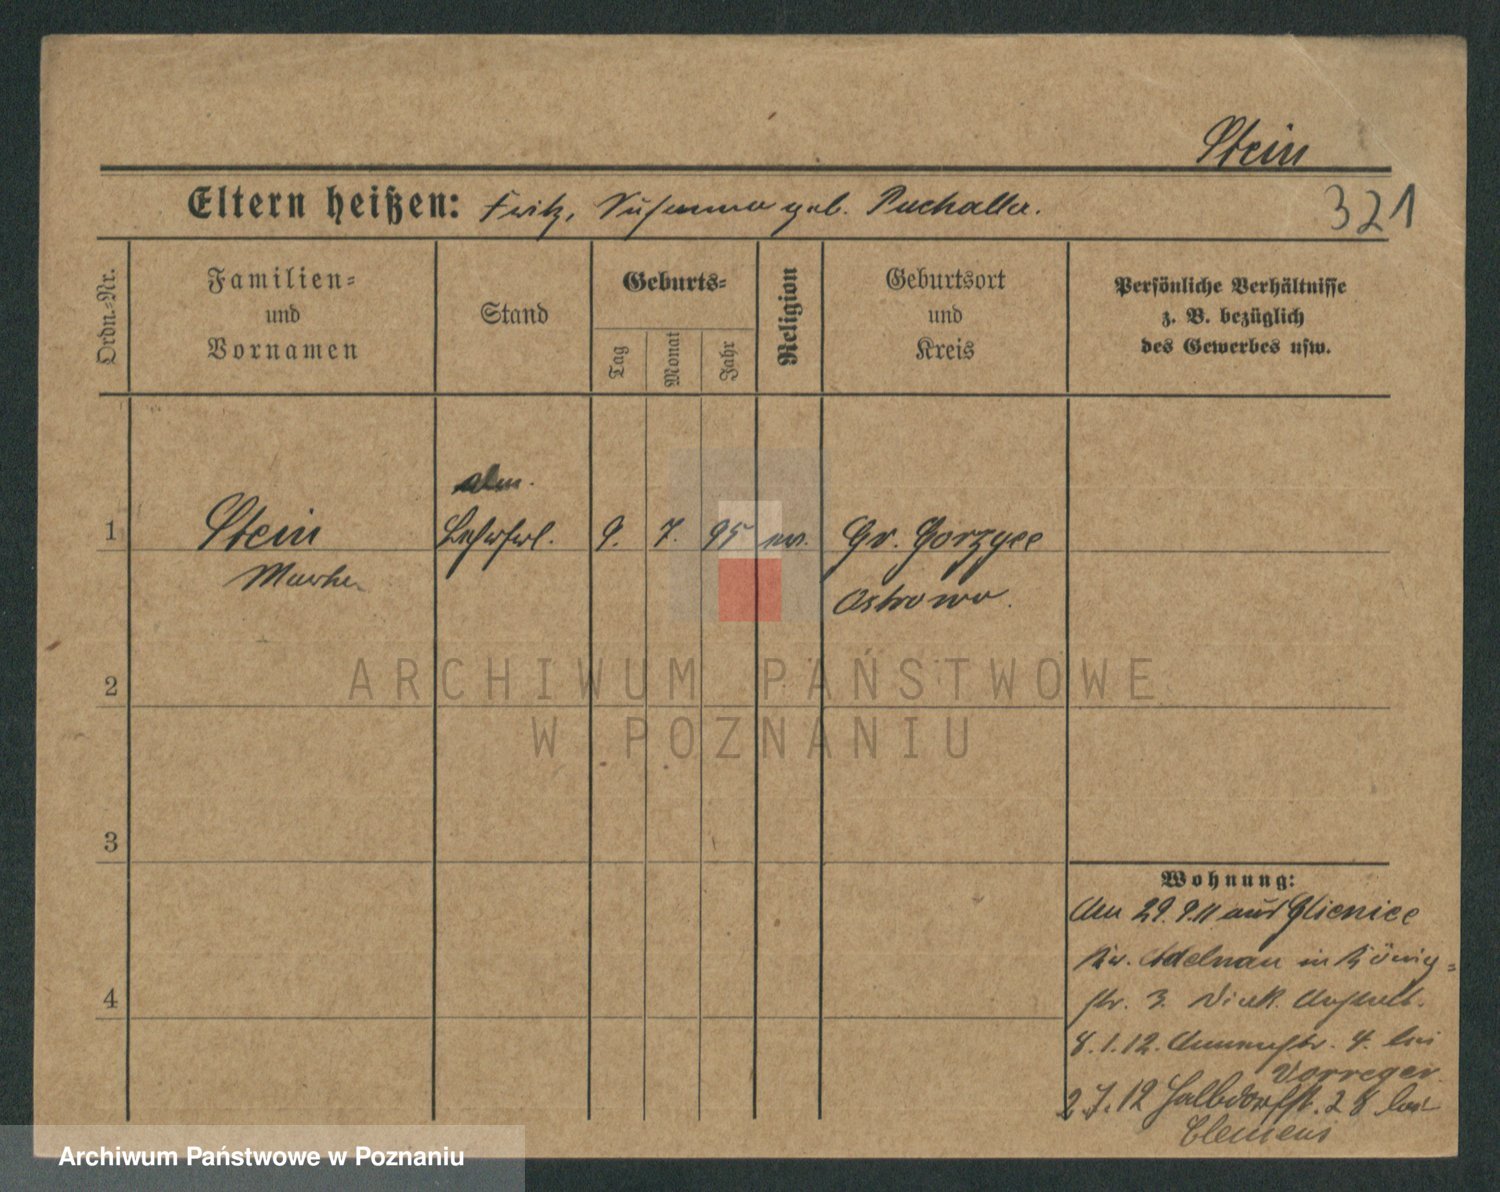 Stein
Eltern heißen: Fritz, Susanna geb. Puchalla.
321
Ordn.-Nr.
Familien-
und
Vornamen
Stand
Geburts-
Tag
Monat
Jahr
Religion
Geburtsort
und
Kreis
Persönliche Verhältnisse
z. B. bezüglich
des Gewerbes usw.
1
Stein
Lehrfrl.
9.
7.
95
ev.
Gr. Gorzyce
Martha
Ostrowo.
ARCHIWUM PAŃSTWOWE
W POZNANIU
2
3
4
Wohnung:
Am 29.9.11 aus Glienice
Kr. Adelnau in König-
str. 3. Diak. Anstalt.
8.1.12. Annenstr. 4. bei
Vorreger
2.7.12 Halbdorfstr. 28 bei
Clemens
Archiwum Państwowe w Poznaniu